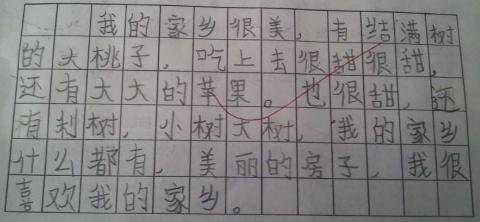 我的家乡很美，有结满树
的大桃子，吃上去很甜很甜，
还有大大的苹果。也很甜，还
有刺树，小树大树，我的家乡
什么都有，美丽的房子，我很
喜欢我的家乡。